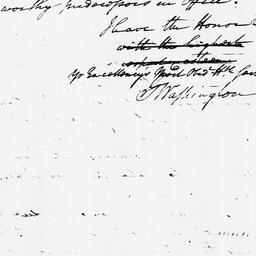 worthy Predecessors in Office.
I have the Honor
with the highest
Yr Excellency's Most Obd. Hble Ser
GWashington